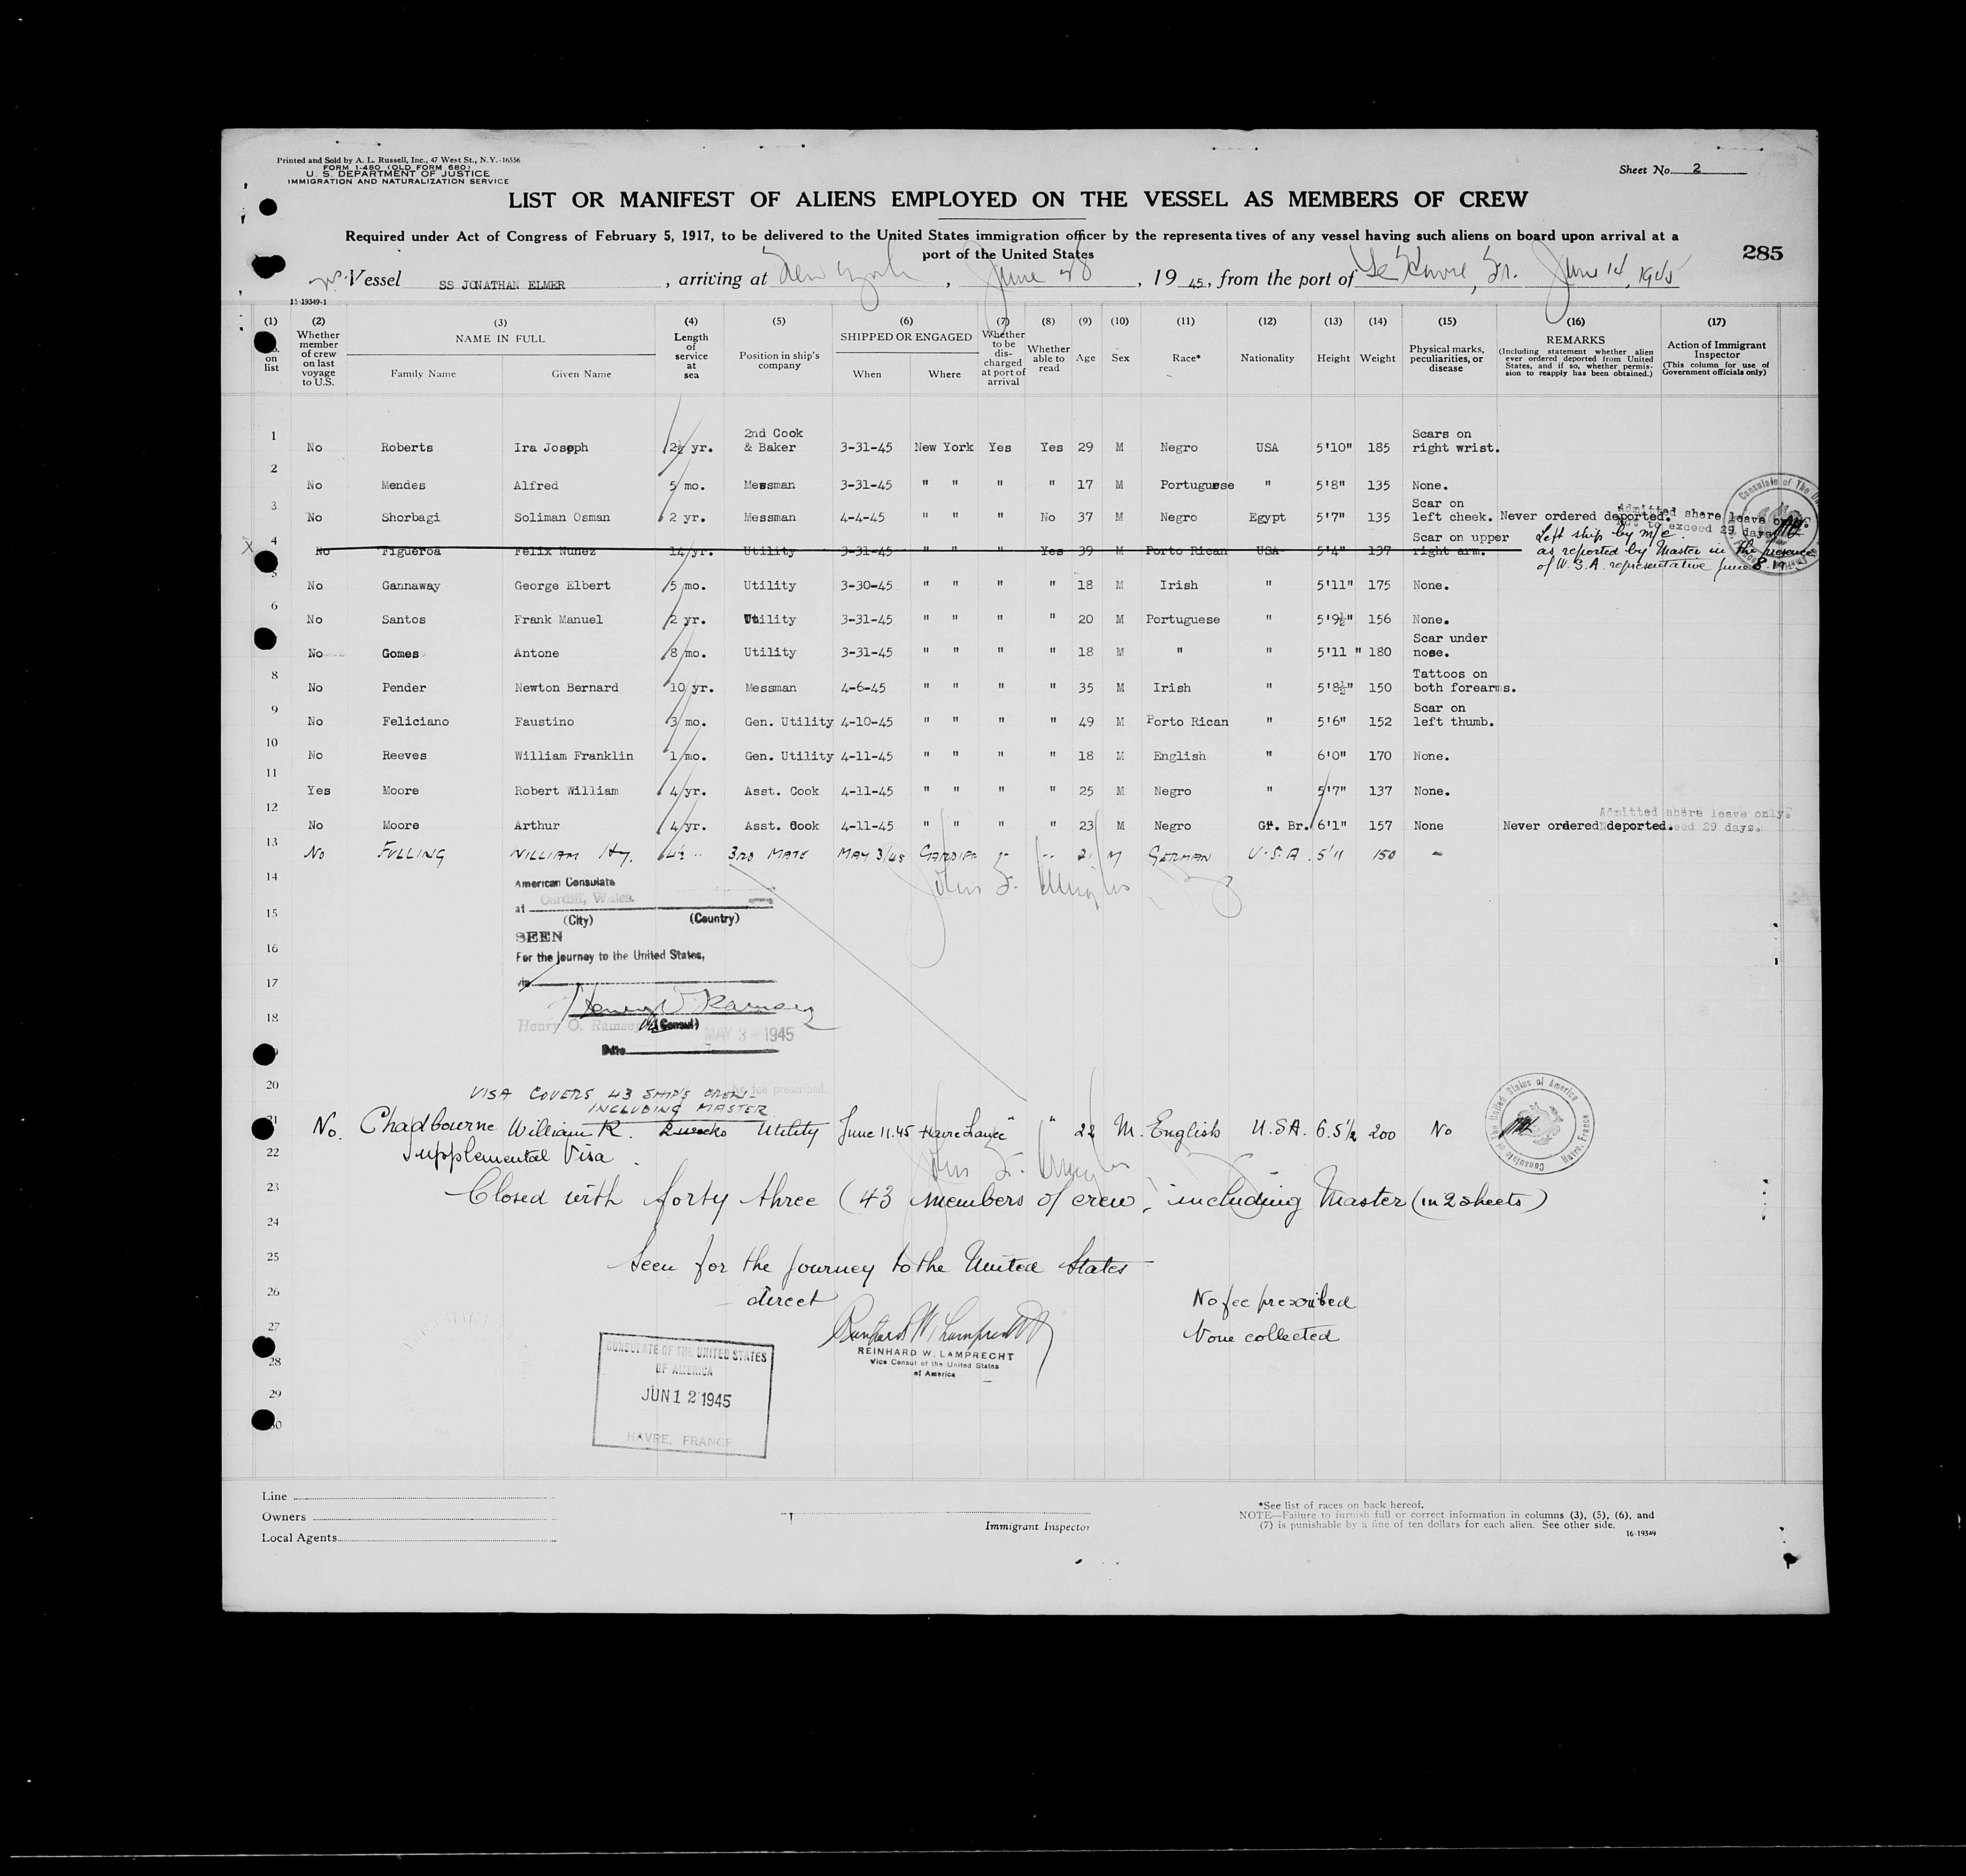 Printed and Sold by A. L. Russell, Inc., 47 West St., N.Y.-16556
FORM I-480 (OLD FORM 680)
U. S. DEPARTMENT OF JUSTICE
IMMIGRATION AND NATURALIZATION SERVICE
Sheet No. 2
LIST OR MANIFEST OF ALIENS EMPLOYED ON THE VESSEL AS MEMBERS OF CREW
Required under Act of Congress of February 5, 1917, to be delivered to the United States immigration officer by the representatives of any vessel having such aliens on board upon arrival at a
port of the United States
285
Vessel SS JONATHAN ELMER, arriving at New York, June 28, 19 45, from the port of Le Havre, Fr. June 14, 1945
15-19349-1
(1) (2) (3) (4) (5) (6) (7) (8) (9) (10) (11) (12) (13) (14) (15) (16) (17)
No. on list
Whether member of crew on last voyage to U.S.
NAME IN FULL
Family Name Given Name
Length of service at sea
Position in ship's company
SHIPPED OR ENGAGED
When Where
Whether to be discharged at port of arrival
Whether able to read
Age Sex Race* Nationality Height Weight
Physical marks, peculiarities, or disease
REMARKS
(Including statement whether alien ever ordered deported from United States, and if so, whether permission to reapply has been obtained.)
Action of Immigrant Inspector
(This column for use of Government officials only)
1 No Roberts Ira Joseph 2½ yr. 2nd Cook & Baker 3-31-45 New York Yes Yes 29 M Negro USA 5'10" 185 Scars on right wrist.
2 No Mendes Alfred 5 mo. Messman 3-31-45 " " " " 17 M Portuguese " 5'8" 135 None.
3 No Shorbagi Soliman Osman 2 yr. Messman 4-4-45 " " " No 37 M Negro Egypt 5'7" 135 Scar on left cheek. Never ordered deported.
Admitted shore leave only.
Not to exceed 29 days.
4 No Figueroa Felix Nunez 14 yr. Utility 3-31-45 " " " Yes 39 M Porto Rican USA 5'4" 137 Scar on upper right arm.
Left ship by m/c
as reported by Master in the presence
of W.S.A. representative June 8 19
5 No Gannaway George Elbert 5 mo. Utility 3-30-45 " " " " 18 M Irish " 5'11" 175 None.
6 No Santos Frank Manuel 2 yr. Utility 3-31-45 " " " " 20 M Portuguese " 5'9½" 156 None.
No Gomes Antone 8 mo. Utility 3-31-45 " " " " 18 M " " 5'11 " 180 Scar under nose.
8 No Pender Newton Bernard 10 yr. Messman 4-6-45 " " " " 35 M Irish " 5'8½" 150 Tattoos on both forearms.
9 No Feliciano Faustino 3 mo. Gen. Utility 4-10-45 " " " " 49 M Porto Rican " 5'6" 152 Scar on left thumb.
10 No Reeves William Franklin 1 mo. Gen. Utility 4-11-45 " " " " 18 M English " 6'0" 170 None.
11 Yes Moore Robert William 4 yr. Asst. Cook 4-11-45 " " " " 25 M Negro " 5'7" 137 None.
12 No Moore Arthur 4 yr. Asst. Cook 4-11-45 " " " " 23 M Negro Gt. Br. 6'1" 157 None Never ordered deported.
Admitted shore leave only.
Not to exceed 29 days.
13 No FULLING WILLIAM HY. 4½ " 3RD MATE MAY 3/45 CARDIFF " " 21 M GERMAN U.S.A. 5'11 150 -
14
American Consulate
at Cardiff, Wales.
15
(City) (Country)
16
SEEN
For the journey to the United States,
17
via
Henry O. Ramsey
18
Henry O. Ramsey (Consul)
MAY 3 1945
Date
20
No fee prescribed.
VISA COVERS 43 SHIP'S CREW
INCLUDING MASTER
21 No. Chadbourne William R. 2 weeks Utility June 11.45 Havre France " " 22 M. English U.S.A. 6.5½ 200 No
22 Supplemental Visa
Consulate of The United States of America
Havre, France
23 Closed with forty three (43 members of crew) including Master (in 2 sheets)
24
25 Seen for the Journey to the United States
26 direct
No fee prescribed
27
None collected
REINHARD W. LAMPRECHT
Vice Consul of the United States
of America
28
CONSULATE OF THE UNITED STATES
OF AMERICA
JUN 12 1945
HAVRE, FRANCE
29
30
Line
Owners
Local Agents
Immigrant Inspector
*See list of races on back hereof.
NOTE—Failure to furnish full or correct information in columns (3), (5), (6), and
(7) is punishable by a fine of ten dollars for each alien. See other side.
16-19349